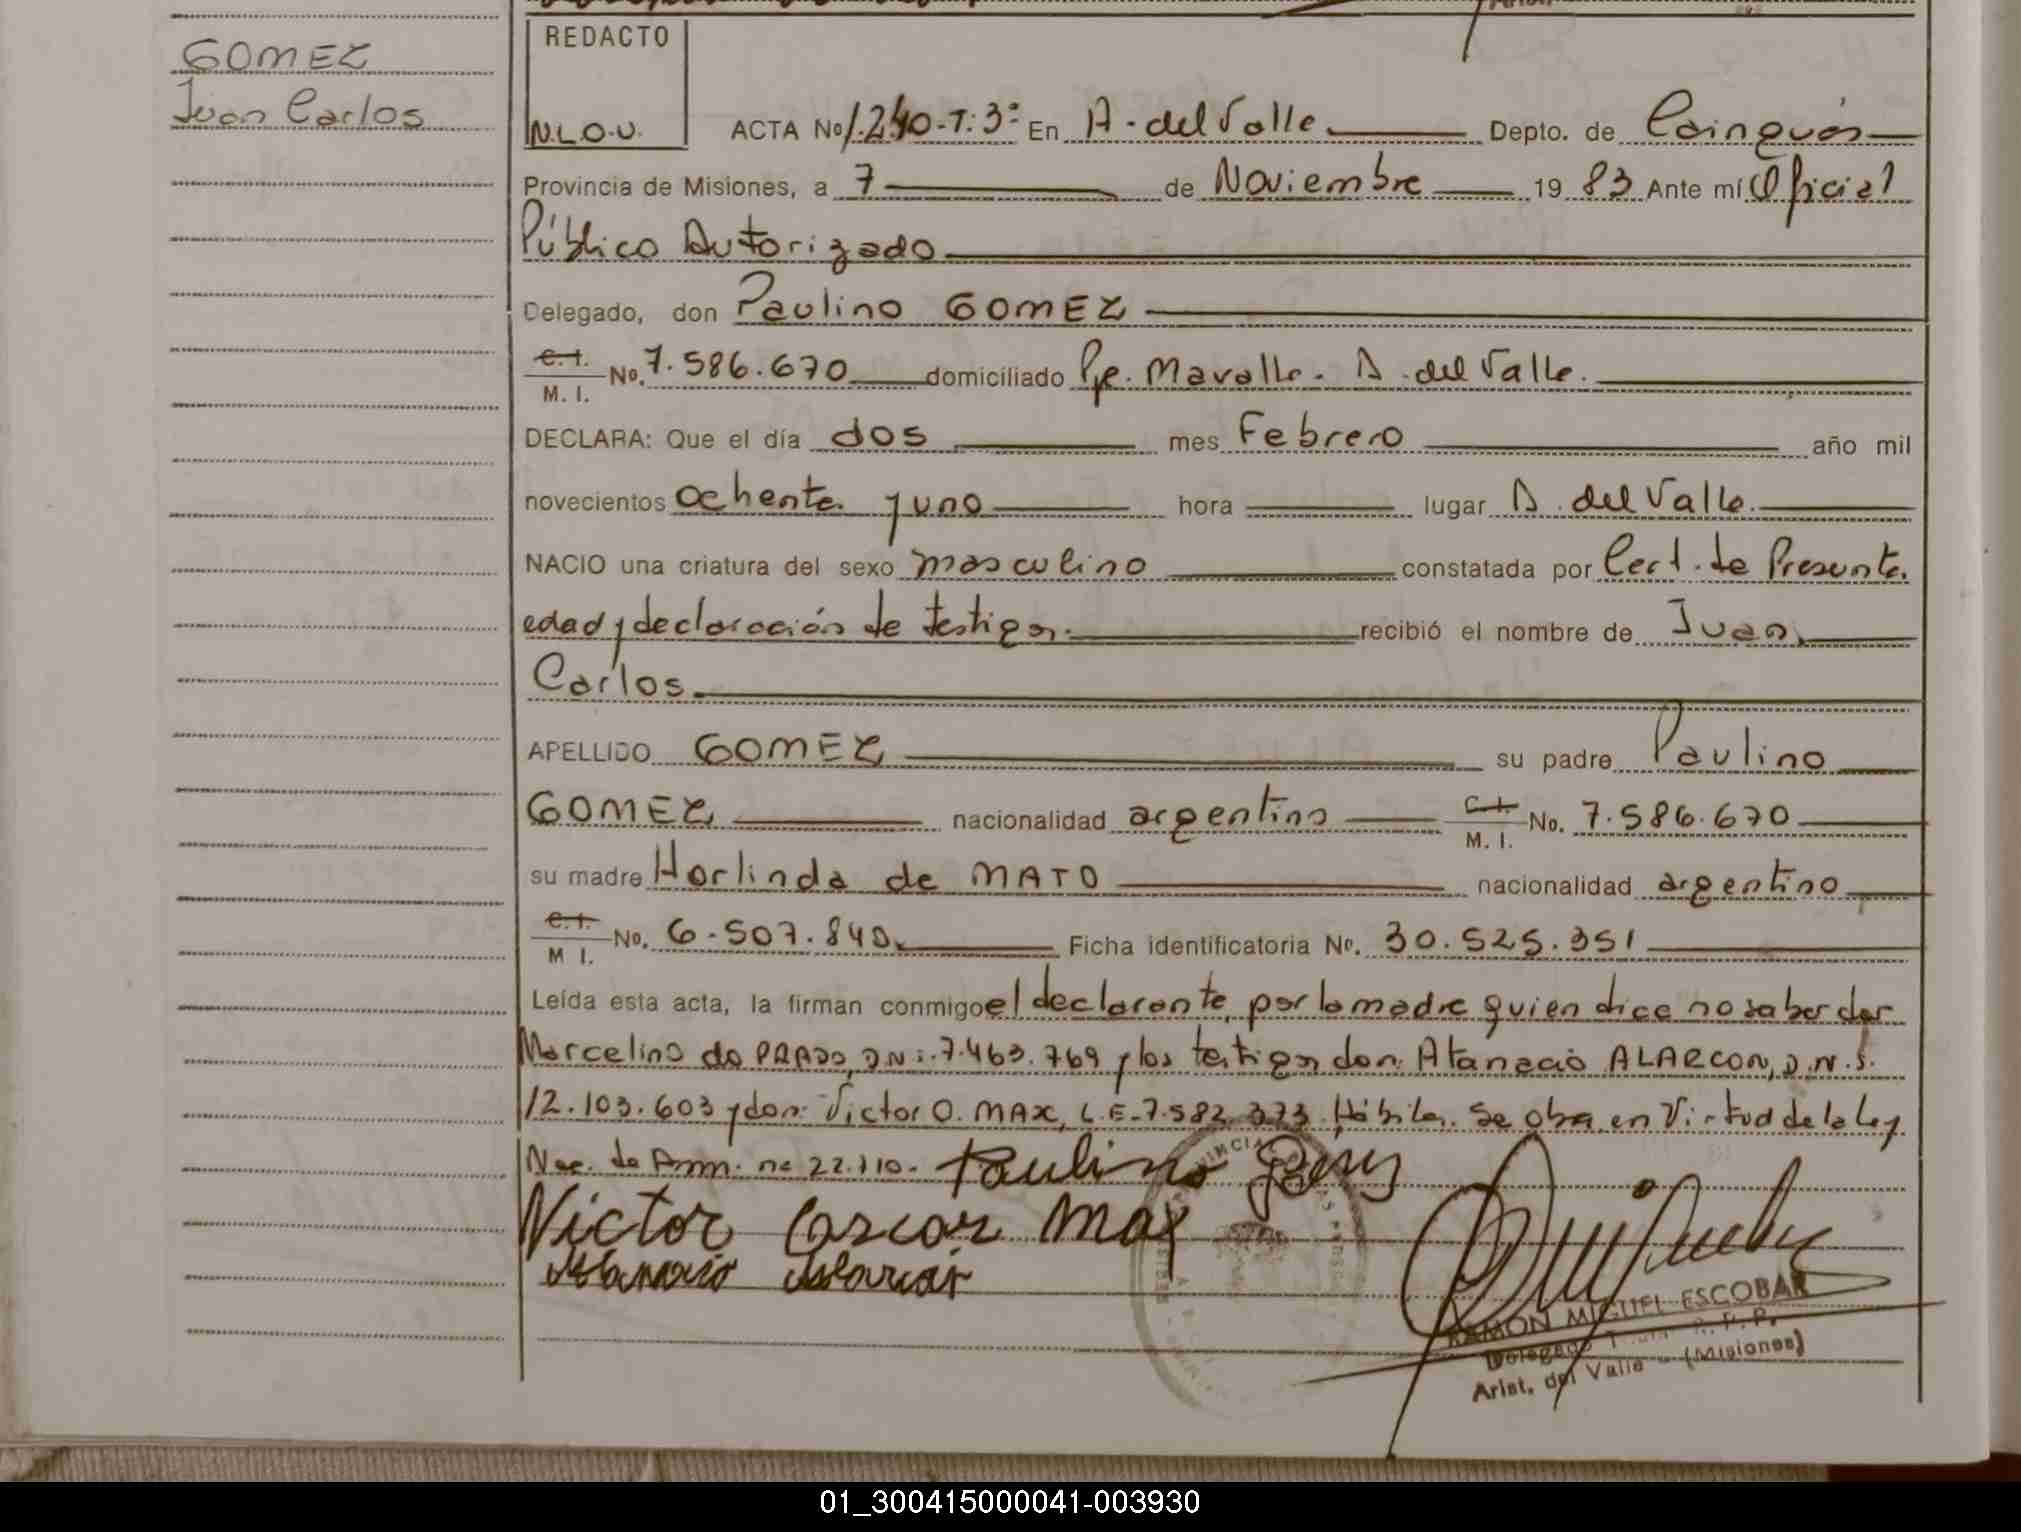 GOMEZ
Juan Carlos
REDACTO
N.L.O.U.
ACTA No 1.240-T:3º En A. del Valle Depto. de Cainguás
Provincia de Misiones, a 7 de Noviembre 19 83 Ante mí Oficial
Público Autorizado
Delegado, don Paulino GOMEZ
C. I.
M. I. No. 7.586.670 domiciliado Pje. Mavalle. A. del Valle.
DECLARA: Que el día dos mes Febrero año mil
novecientos ochenta y uno hora lugar A. del Valle.
NACIO una criatura del sexo masculino constatada por Cert. de Presunta
edad y declaración de testigos. recibió el nombre de Juan
Carlos
APELLIDO GOMEZ su padre Paulino
GOMEZ nacionalidad argentino C. I.
M. I. No. 7.586.670
su madre Horlinda de MATO nacionalidad argentino
C. I.
M I. No. 6.507.840 Ficha identificatoria No. 30.525.351
Leída esta acta, la firman conmigo el declarante, por la madre quien dice no saber
Marcelino do PRADO, D.N.I. 7.463.769 y los testigos don: Atanacio ALARCON, D.N.I.
12.103.603 y don: Victor O. MAX, L.E-7.582.373 Hábiles. Se obra en Virtud de la Ley
Nac. de Amn. nº 22.110.- Paulino Gomez
Victor Oscar Max
Atanacio Alarcon
RAMON MIGUEL ESCOBAR
Delegado R. P. P.
Arist. del Valle - (Misiones)
01_300415000041-003930